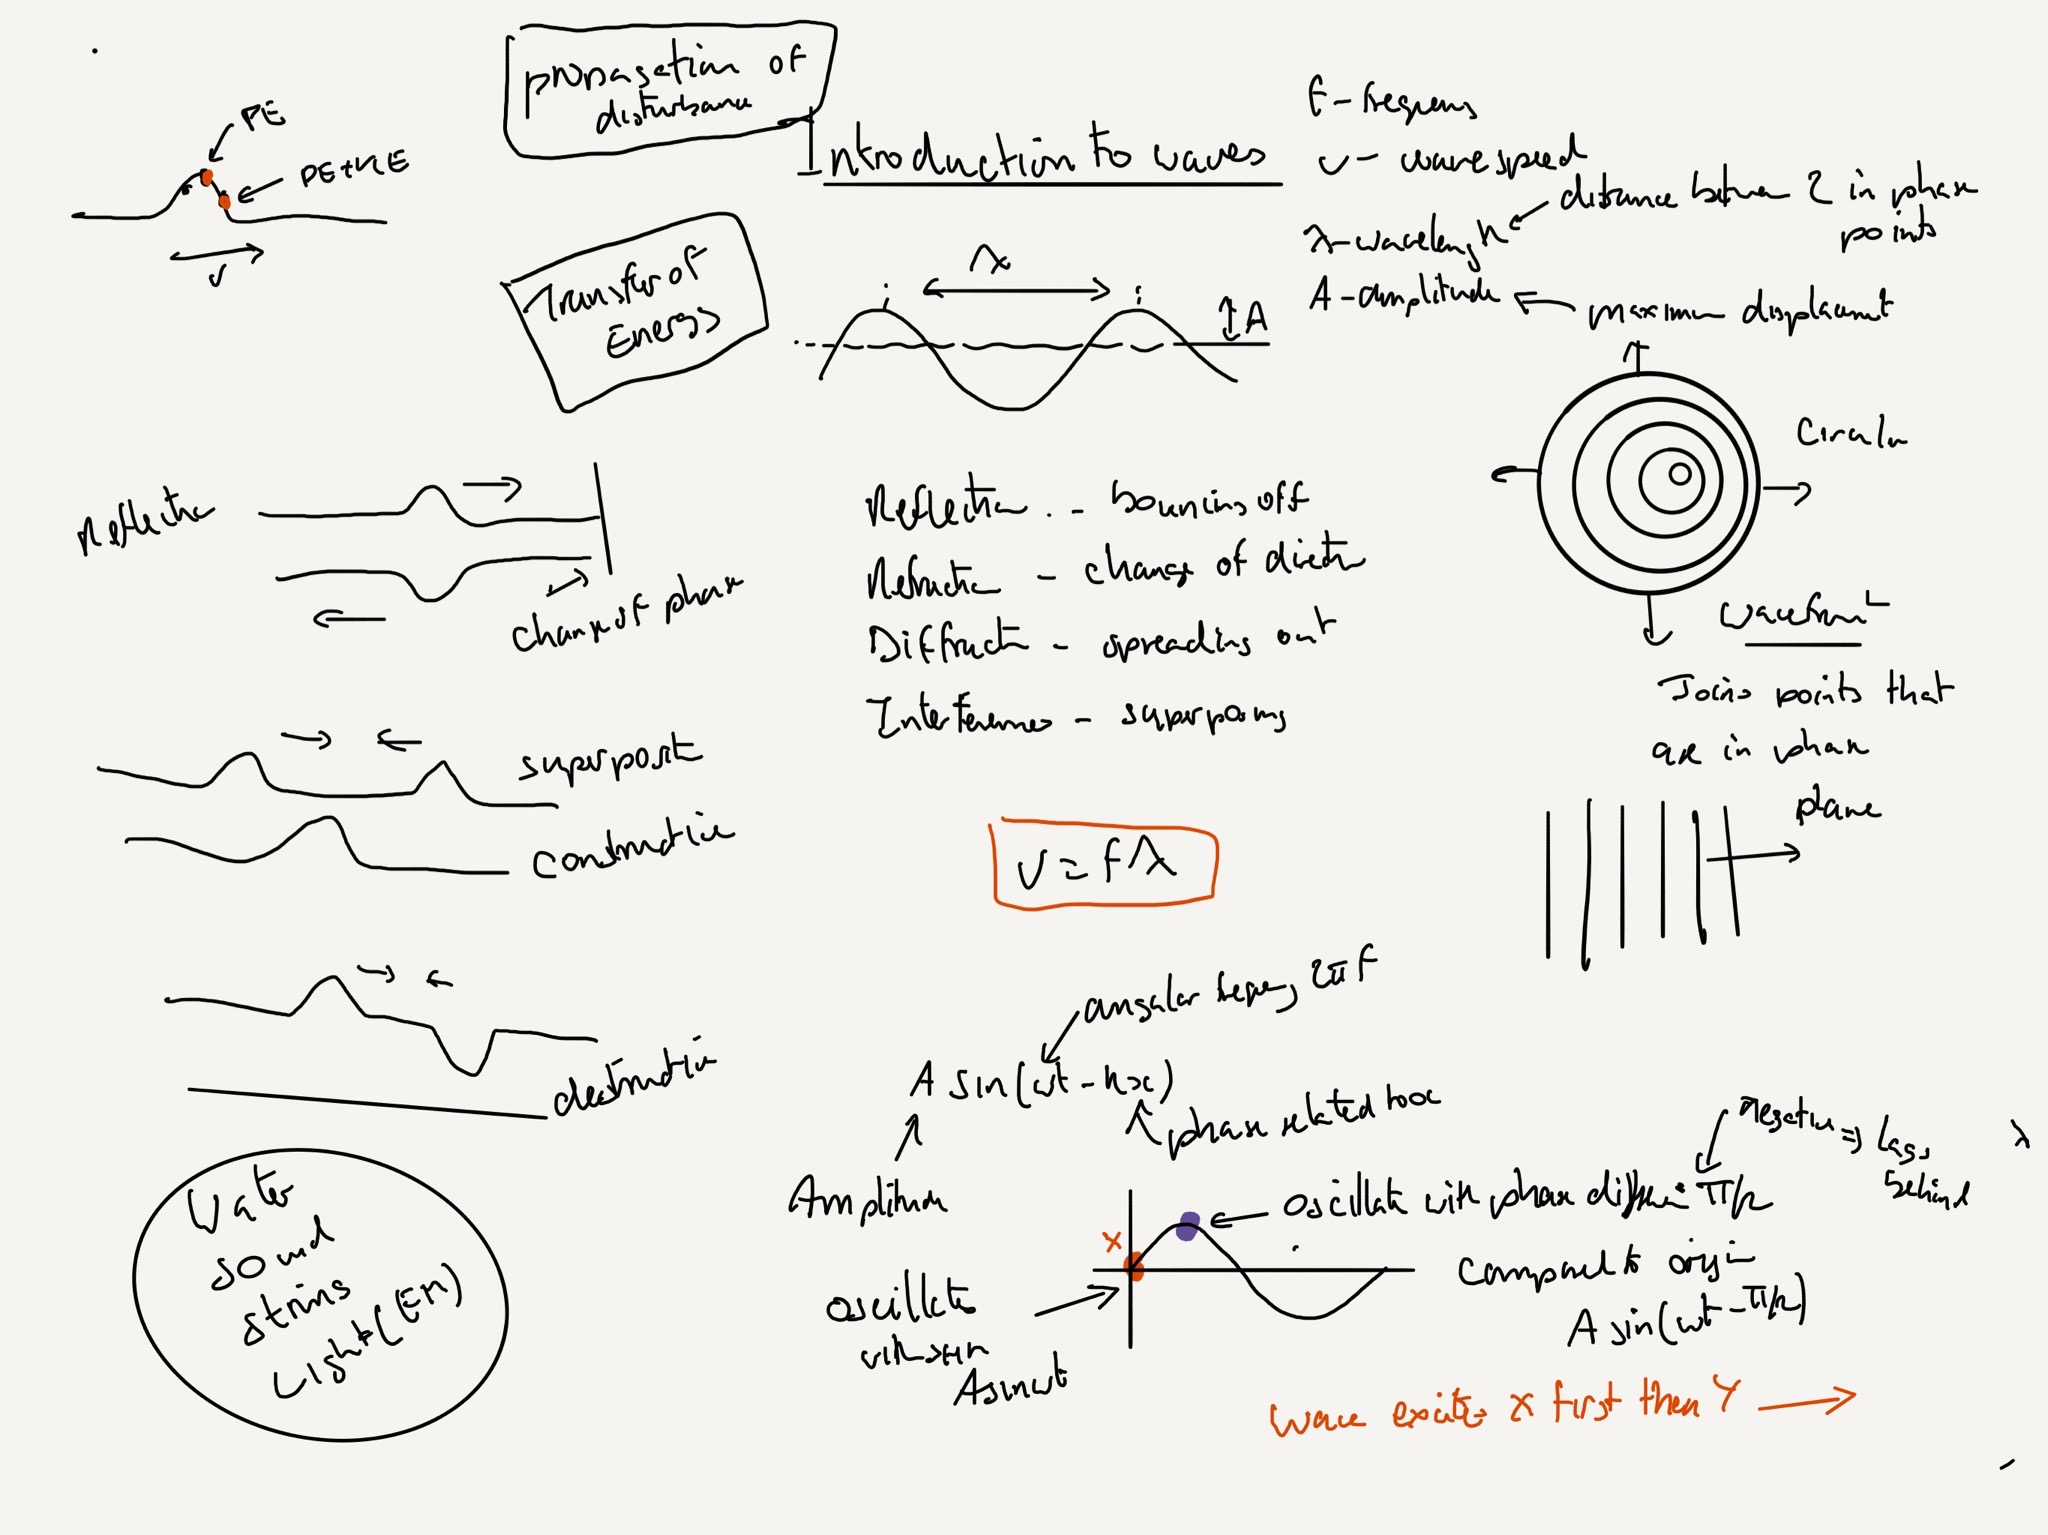 propagation of
disturbance
Introduction to waves
f - frequency
v - wave speed
λ - wavelength
distance between 2 in phase
points
A - amplitude
maximum displacement
PE
PE+KE
v
Transfer of
Energy
λ
A
Circular
Wavefront
Joins points that
are in phase
plane
Reflection
change of phase
Reflection - bouncing off
Refraction - change of direction
Diffraction - spreading out
Interference - superposing
superposition
constructive
v = fλ
destructive
angular frequency 2πf
A sin(ωt - kx)
phase related to x
Amplitude
negative => lags
behind
λ
oscillate with phase difference π/2
compared to origin
A sin(ωt - π/2)
X
oscillates
with
A sin ωt
Water
sound
strings
Light (EM)
wave excites X first then Y